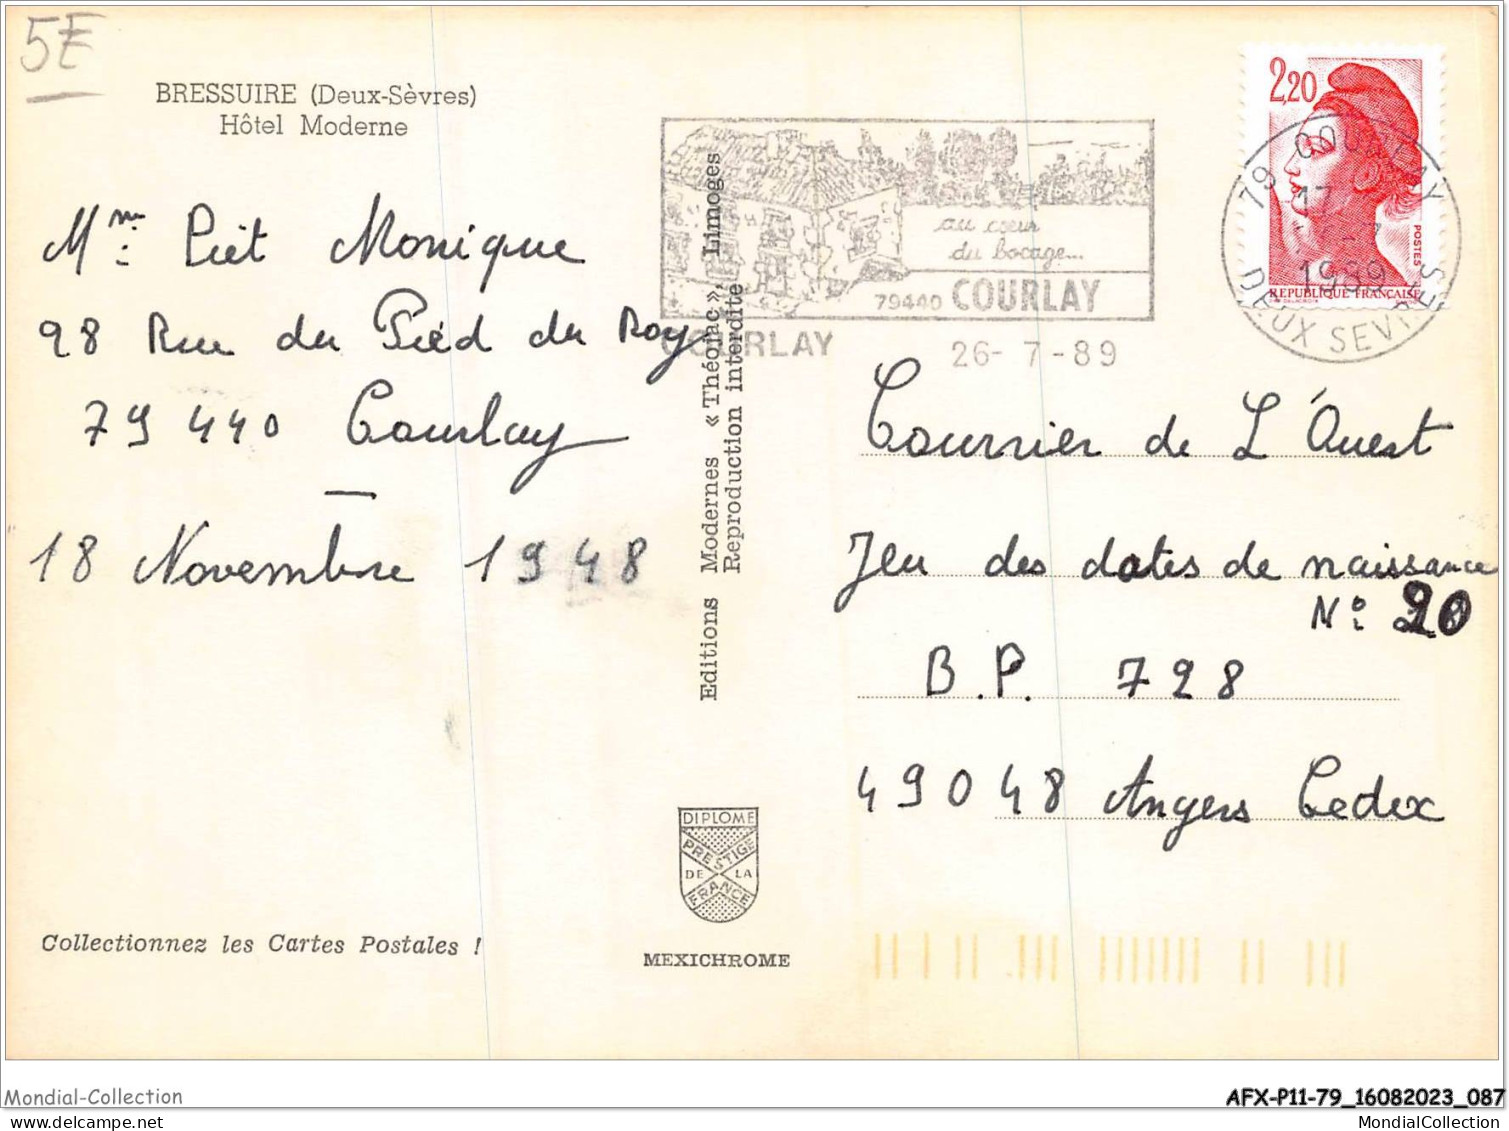 5E
BRESSUIRE (Deux-Sèvres)
Hôtel Moderne
Mme Piet Monique
98 Rue du Pied du Roy
79 440 Courlay
18 Novembre 1948
Collectionnez les Cartes Postales !
Editions Modernes « Théojac », Limoges
Reproduction interdite
DIPLOME
PRESTIGE
DE LA
FRANCE
MEXICHROME
au cœur
du bocage...
79440 COURLAY
COURLAY
26-7-89
2,20
POSTES
REPUBLIQUE FRANÇAISE
79 COURLAY
17
1989
DEUX SEVRES
Courrier de L'Ouest
Jeu des dates de naissance
N° 20
B.P. 728
49048 Angers Cedex
Mondial-Collection
AFX-P11-79_16082023_087
MondialCollection
MondialCollection